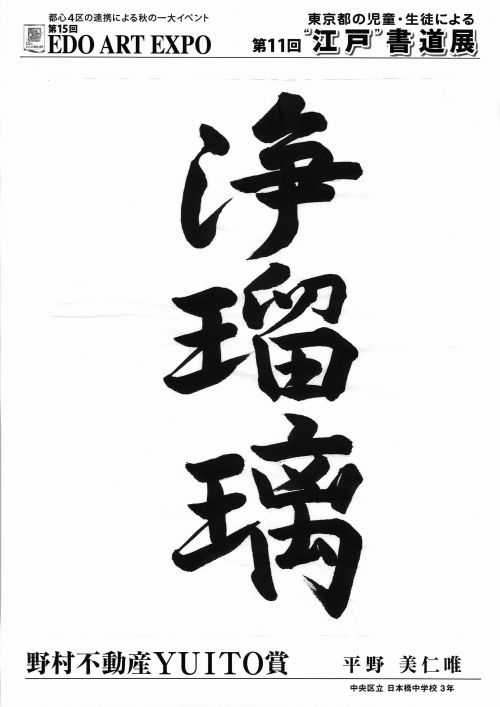 都心4区の連携による秋の一大イベント
第15回
EDO ART EXPO
東京都の児童・生徒による
第11回 “江戸”書道展
浄
瑠
璃
野村不動産YUITO賞
平野 美仁唯
中央区立 日本橋中学校 3年